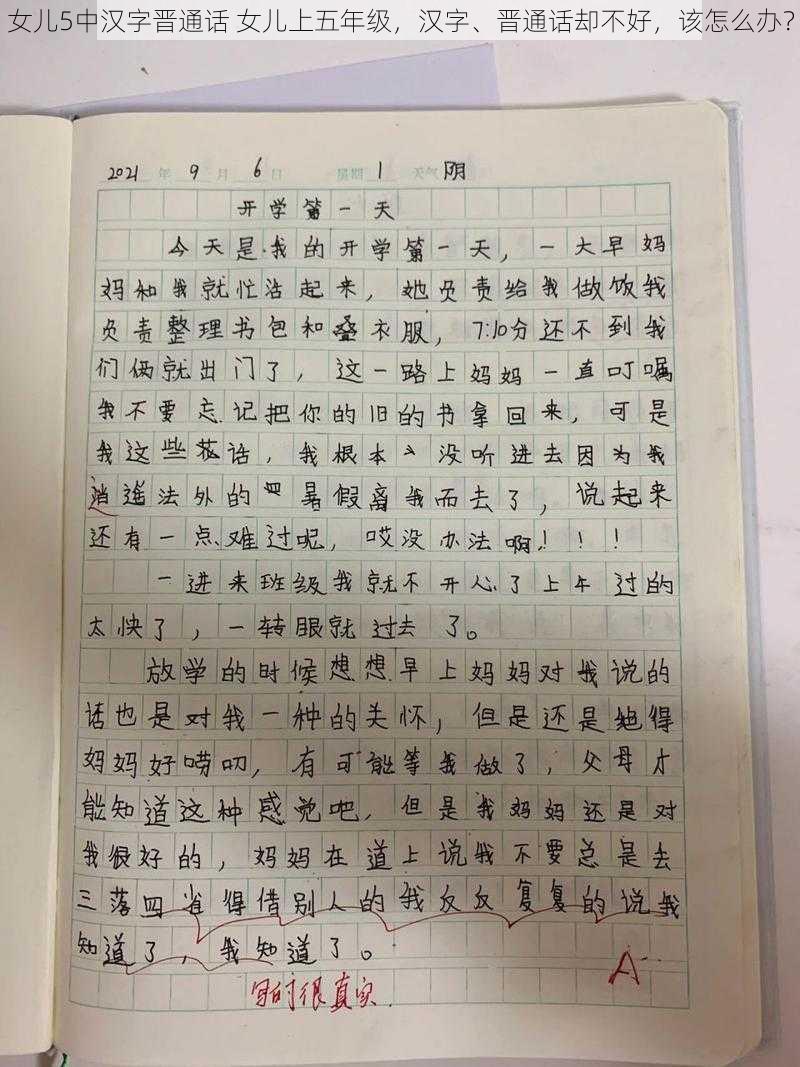 女儿5中汉字晋通话 女儿上五年级，汉字、晋通话却不好，该怎么办？
2021年9月6日 星期1 天气阴
开学第一天
今天是我的开学第一天，一大早妈
妈和我就忙活起来，她负责给我做饭我
负责整理书包和叠衣服，7:10分还不到我
们俩就出门了，这一路上妈妈一直叮嘱
我不要忘记把你的旧的书拿回来，可是
我这些花话，我根本没听进去因为我
逍遥法外的暑假离我而去了，说起来
还有一点难过呢，哎没办法啊！！！
一进来班级我就不开心了上午过的
太快了，一转眼就过去了。
放学的时候想想早上妈妈对我说的
话也是对我一种的关怀，但是还是觉得
妈妈好唠叨，有可能等我做了，父母才
能知道这种感觉吧，但是我妈妈还是对
我很好的，妈妈在道上说我不要总是丢
三落四省得借别人的我反反复复的说我
知道了，我知道了。
A
写的很真实.